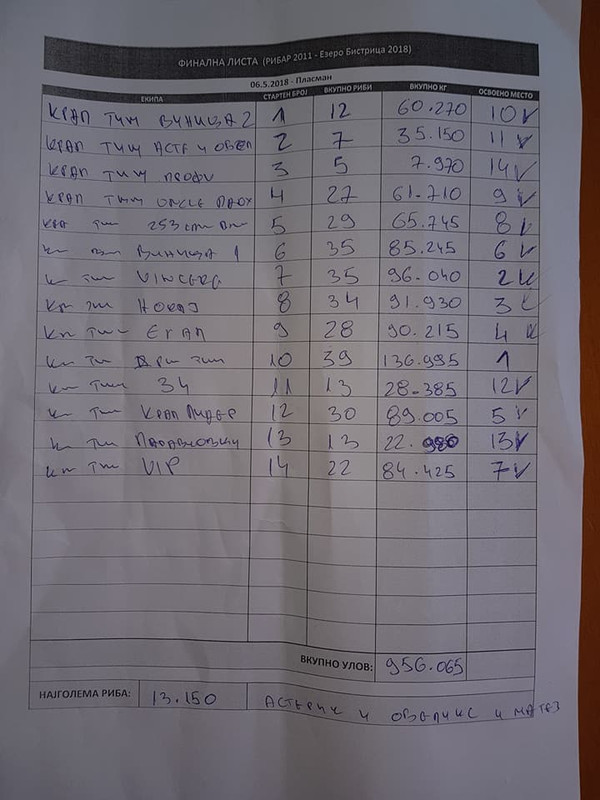 ФИНАЛНА ЛИСТА (РИБАР 2011 - Езеро Бистрица 2018)
06.5.2018 - Пласман
ЕКИПА СТАРТЕН БРОЈ ВКУПНО РИБИ ВКУПНО КГ ОСВОЕНО МЕСТО
КРАП ТИМ ВИНИЦА 2 1 12 60.270 10
КРАП ТИМ АСТЕ И ОБЕЛ 2 7 35.150 11
КРАП ТИМ ПРОФИ 3 5 7.970 14
КРАП ТИМ UNCLE 4 27 61.710 9
ТИМ 253 5 29 65.745 8
ВИНИЦА 1 6 35 85.245 6
7 35 96.040 2
8 34 91.930 3
9 28 90.215 4
10 39 136.995 1
ТИМ 34 11 13 28.385 12
КРАП ЛИДЕР 12 30 89.005 5
13 13 22. 13
VIP 14 22 84.425 7
ВКУПНО УЛОВ: 956.065
НАЈГОЛЕМА РИБА: 13.150 АСТЕРИКС И ОБЕЛИКС И